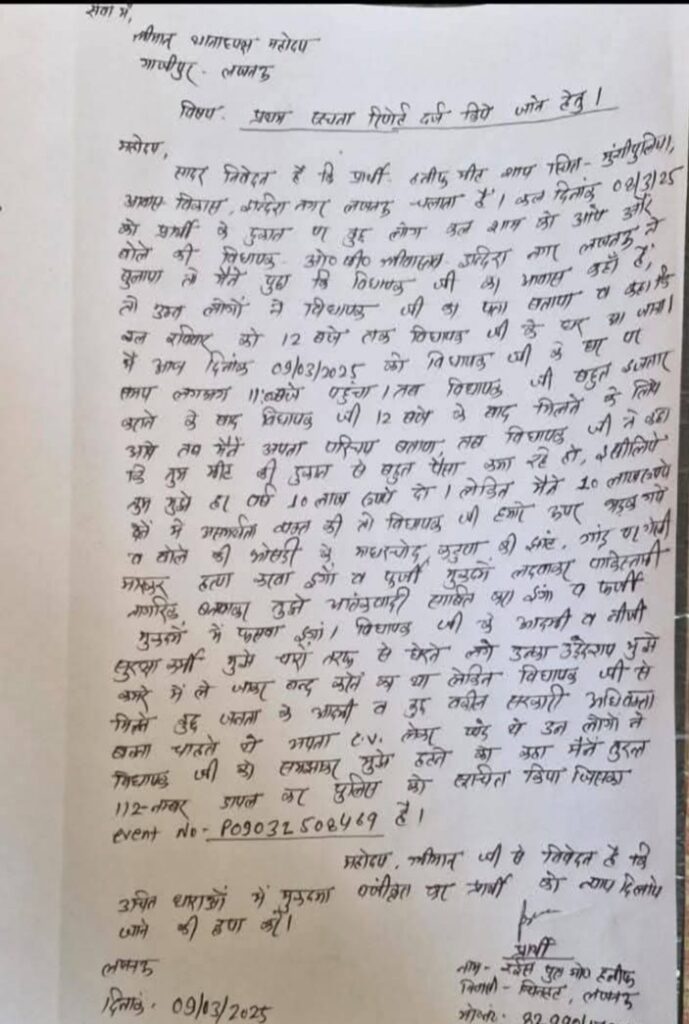 सेवा में,
श्रीमान् थानाध्यक्ष महोदय
गाजीपुर - लखनऊ
विषय - प्रथम सूचना रिपोर्ट दर्ज किये जाने हेतु।
महोदय,
सादर निवेदन है कि प्रार्थी हनीफ मीट शाप स्थित - मुंशीपुलिया,
आवास विकास, इन्दिरा नगर लखनऊ चलाता है। कल दिनांक 08/3/25
को प्रार्थी के दुकान पर कुछ लोग कल शाम को आये और
बोले की विधायक ओ० पी० श्रीवास्तव इन्दिरा नगर लखनऊ ने
बुलाया तो मैंने पूछा कि विधायक जी का आवास कहाँ है,
तो उक्त लोगों ने विधायक जी का पता बताया व कहा कि
कल रविवार को 12 बजे तक विधायक जी के घर आ जाना।
मैं आज दिनांक 09/03/2025 को विधायक जी के घर पर
समय लगभग 11:00 बजे पहुंचा। तब विधायक जी बहुत इन्तजार
कराने के बाद विधायक जी 12 बजे के बाद मिलने के लिये
आये तब मैंने अपना परिचय बताया, तब विधायक जी ने कहा
कि तुम मीट की दुकान से बहुत पैसा कमा रहे हो, इसीलिये
तुम मुझे हर वर्ष 10 लाख रुपये दो। लेकिन मैंने 10 लाख रुपये
देने में असमर्थता व्यक्त की तो विधायक जी हमारे ऊपर भड़क गये
व बोले की भोसड़ी के मादरचोद, कटुआ की झांट, गांड पर गोली
मारकर हत्या करवा दूंगा व फर्जी मुकदमें लदवाकर पाकिस्तानी
नागरिक बनवाकर तुझे आतंकवादी साबित करा दूंगा व फर्जी
मुकदमें में फसवा दूंगा। विधायक जी के आदमी व निजी
सुरक्षा कर्मी मुझे चारों तरफ से घेरने लगे उनका उद्देश्य मुझे
कमरे में ले जाकर बन्द करने का था लेकिन विधायक जी से
मिलने कुछ जनता के आदमी व कुछ वकील सरकारी अधिवक्ता
बनना चाहते थे अपना C.V. लेकर खड़े थे उन लोगों ने
विधायक जी को समझाकर मुझे हटने को कहा मैंने तुरन्त
112-नम्बर डायल कर पुलिस को सूचित किया जिसका
event No- P09032508469 है।
महोदय, श्रीमान् जी से निवेदन है कि
उचित धाराओं में मुकदमा पंजीकृत कर प्रार्थी को न्याय दिलाये
जाने की कृपा करें।
प्रार्थी
लखनऊ
नाम - रईस पुत्र मो० हनीफ
निवासी - चिनहट, लखनऊ
दिनांक- 09/03/2025